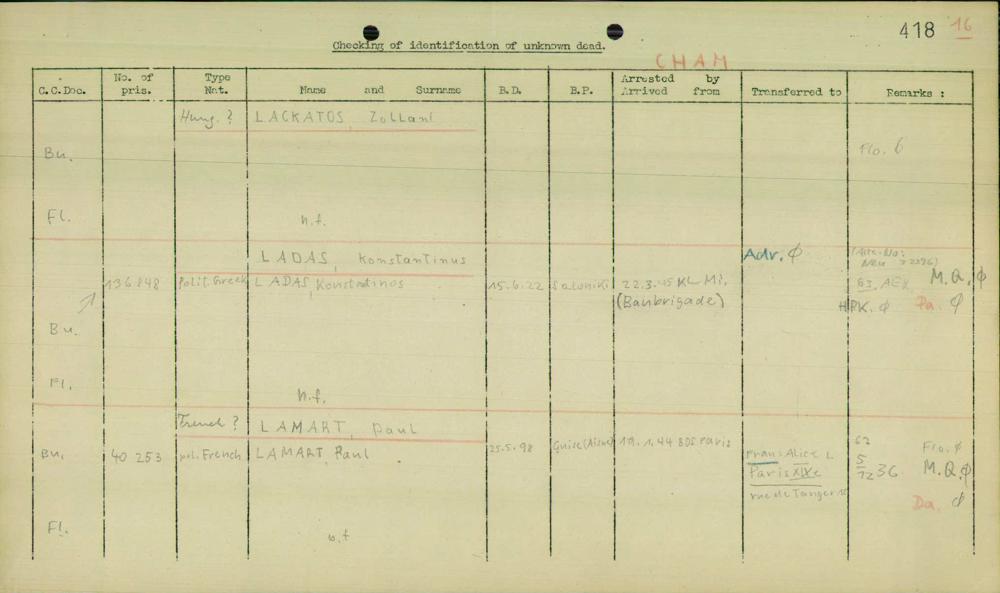 418 16
Checking of identification of unknown dead.
CHAM
C.C.Doc. No. of pris. Type Nat. Name and Surname B.D. B.P. Arrested by Arrived from Transferred to Remarks :
Hung. ? LACKATOS, Zollant
Bu. Flo. 6
Fl. n.f.
LADAS, Konstantinus Adr. Ø
136.848 Polit. Greek LADAS, Konstantinos 15.6.22 Saloniki 22.3.45 KL Mi. M.Q. Ø
(Baubrigade) Ø Da. Ø
Bu.
Fl. n.f.
French ? LAMART, Paul
Bu. 40 253 pol. French LAMART, Paul 25.5.98 Guise (Aisne) 19.1.44 BDS Paris Frau: Alice L 62 Flo. Ø
Paris XIXe 5/12 36 M.Q. Ø
rue de Tanger Da. Ø
Fl. n.f